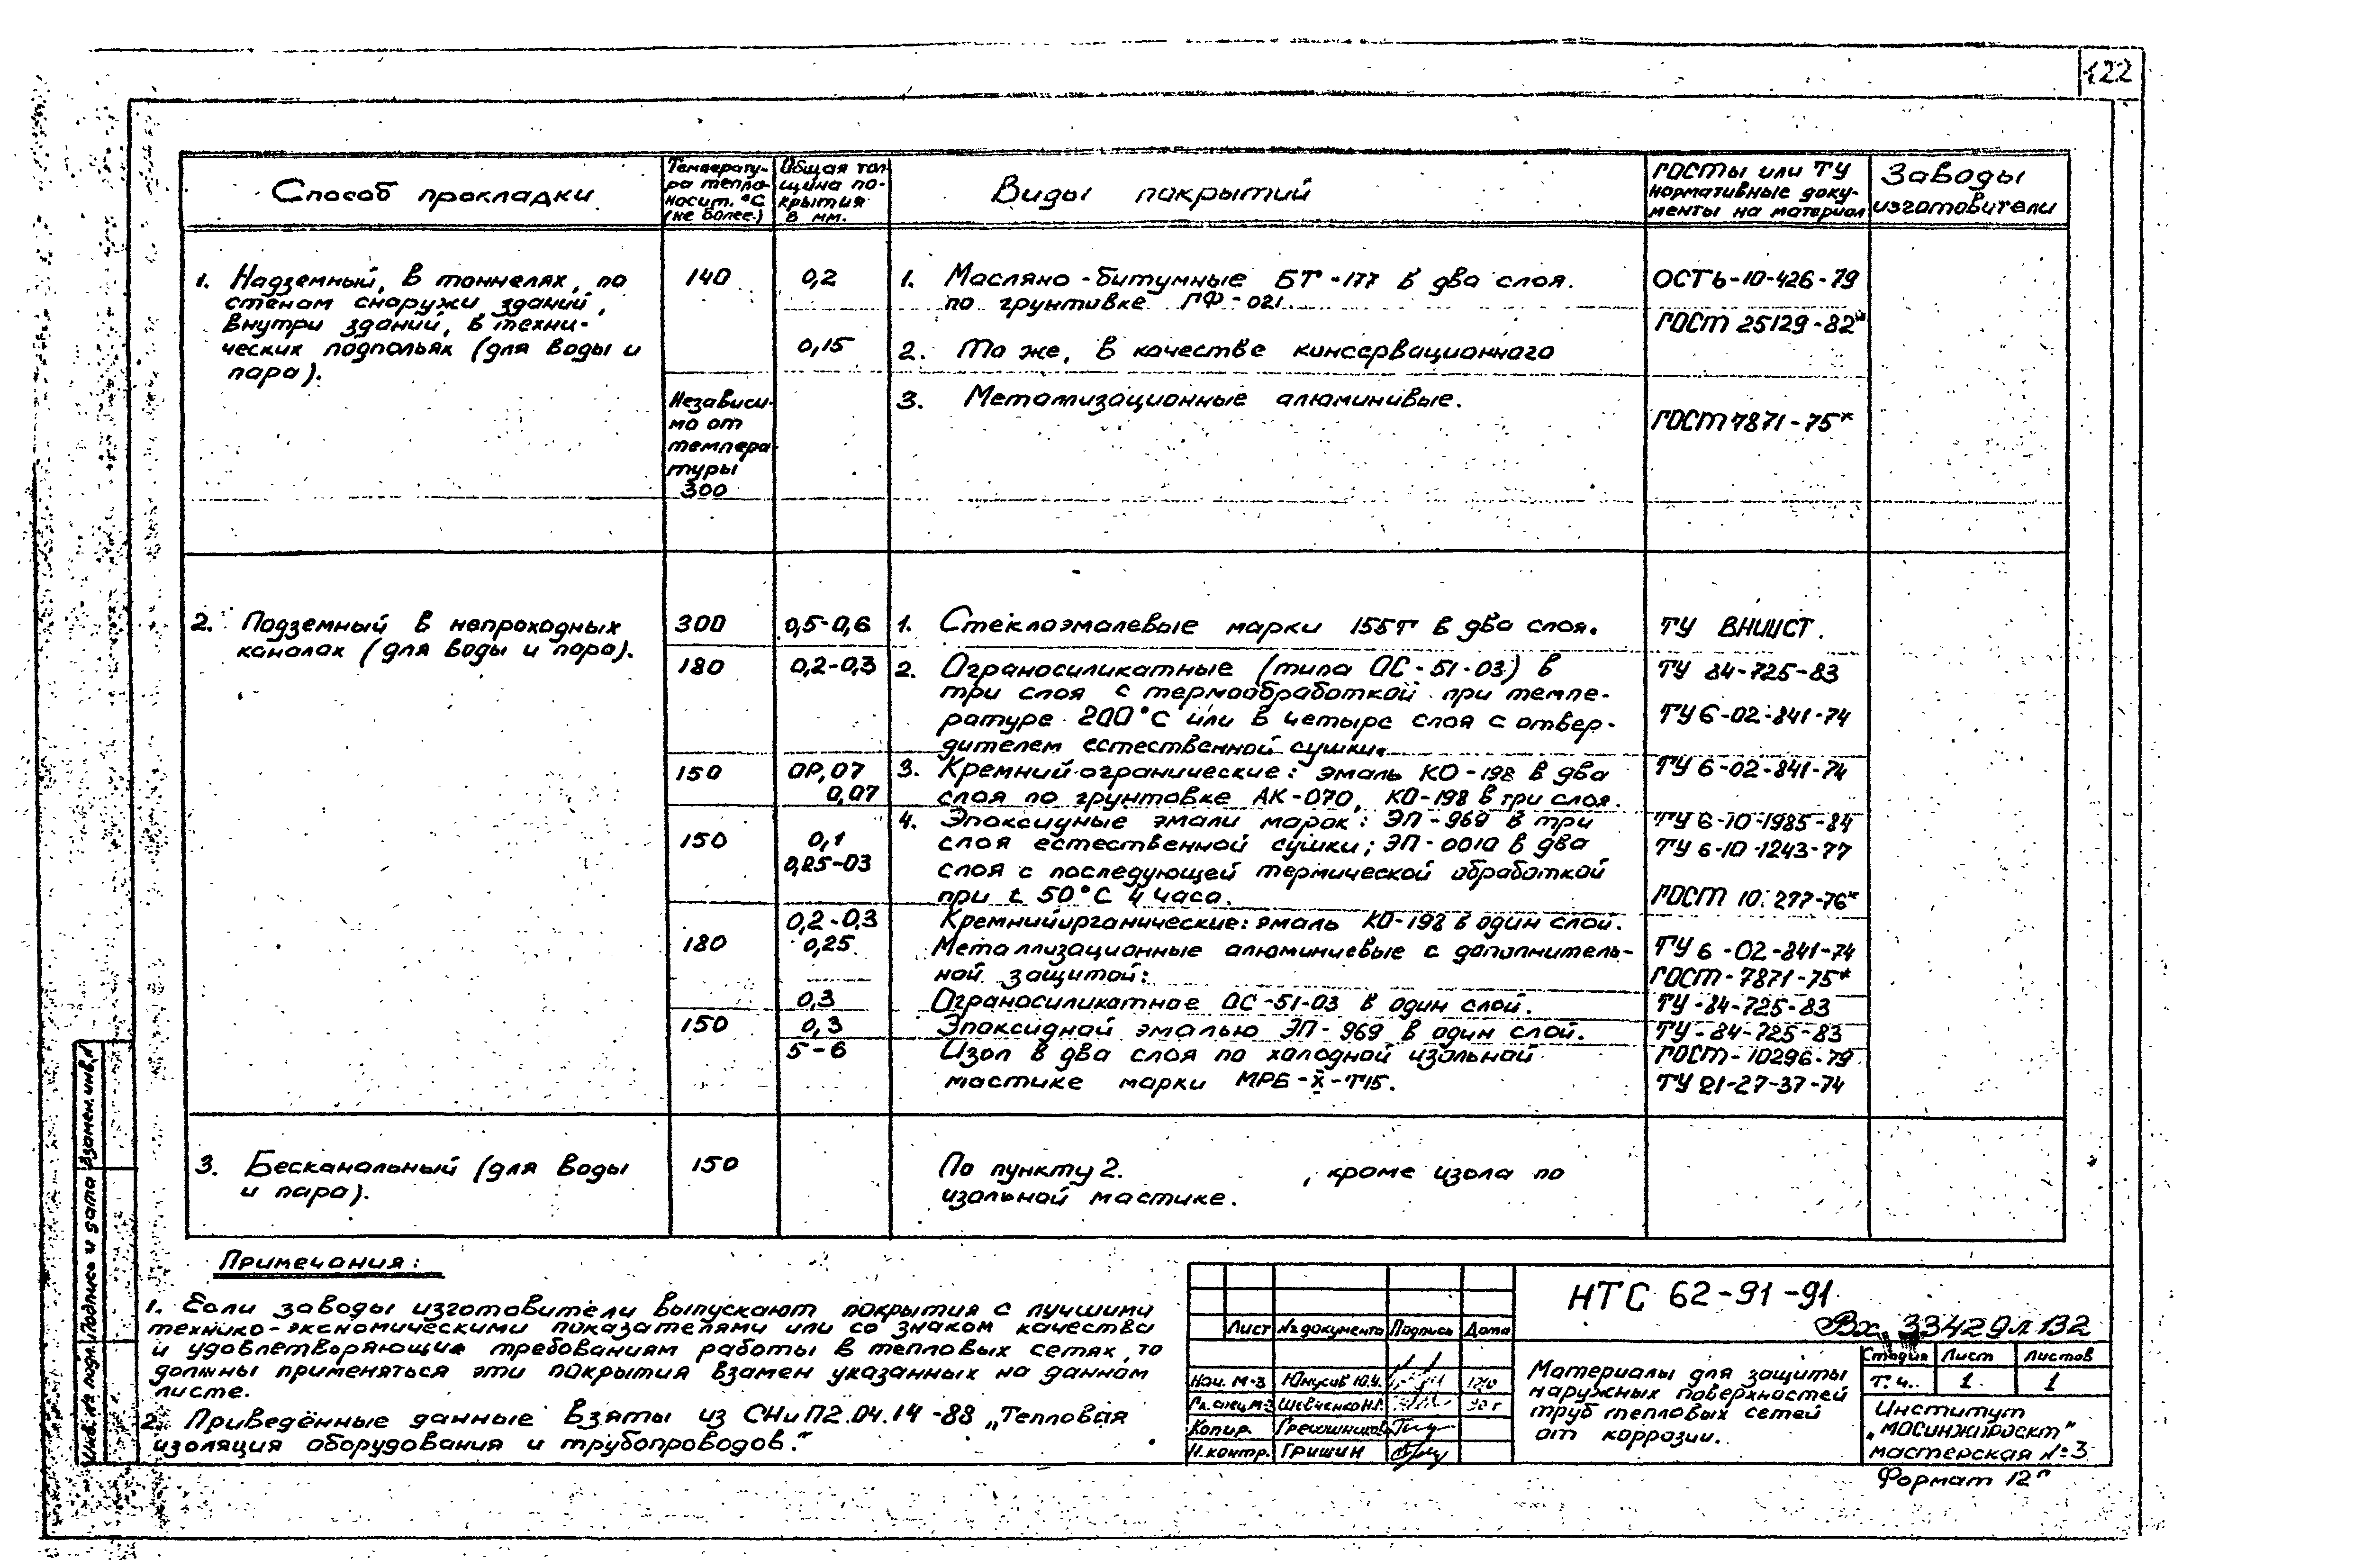 122
Способ прокладки
Температу-
ра тепло-
носит. °С
(не более)
Общая тол
щина по-
крытия
в мм.
Виды покрытий
ГОСТы или ТУ
нормативные доку-
менты на материал
Заводы
изготовители
1. Надземный, в тоннелях, по
стенам снаружи зданий,
внутри зданий, в техни-
ческих подпольях (для воды и
пара).
140
0,2
1. Масляно-битумные БТ-177 в два слоя.
по грунтовке ГФ-021
ОСТ6-10-426-79
ГОСТ 25129-82*
0,15
2. То же, в качестве консервационного
Независи-
мо от
темпера-
туры
300
3. Металлизационные алюминивые.
ГОСТ 7871-75*
2. Подземный в непроходных
каналах (для воды и пара).
300
0,5-0,6
1. Стеклоэмалевые марки 155Т в два слоя.
ТУ ВНИИСТ.
180
0,2-0,3
2. Ограносиликатные (типа ОС-51-03) в
три слоя с термообработкой при темпе-
ратуре 200°С или в четыре слоя с отвер-
дителем естественной сушки.
ТУ 84-725-83
ТУ 6-02-841-74
150
ОР,07
0,07
3. Кремнийогранические: эмаль КО-198 в два
слоя по грунтовке АК-070, КО-198 в три слоя.
ТУ 6-02-841-74
150
0,1
0,25-03
4. Эпоксиуные эмали марок: ЭП-969 в три
слоя естественной сушки; ЭП-0010 в два
слоя с последующей термической обработкой
при t 50°С 4 часа.
ТУ 6-10-1985-84
ТУ 6-10-1243-77
ГОСТ 10.277-76*
0,2-0,3
Кремнийорганические: эмаль КО-198 в один слой.
180
0,25
Металлизационные алюминиевые с дополнитель-
ной защитой:
ТУ 6-02-841-74
ГОСТ-7871-75*
0,3
Ограносиликатное ОС-51-03 в один слой.
ТУ-84-725-83
150
0,3
Эпоксидной эмалью ЭП-969 в один слой.
ТУ-84-725-83
5-6
Изол в два слоя по холодной изольной
мастике марки МРБ-Х-Т15.
ГОСТ-10296-79
ТУ 21-27-37-74
3. Бесканальный (для воды
и пара).
150
По пункту 2. , кроме изола по
изольной мастике.
Примечания:
1. Если заводы изготовители выпускают покрытия с лучшими
технико-экономическими показателями или со знаком качества
и удовлетворяющие требованиям работы в тепловых сетях, то
должны применяться эти покрытия взамен указанных на данном
листе.
2. Приведённые данные взяты из СНиП2.04.14-88 „Тепловая
изоляция оборудования и трубопроводов."
Взамен.инв.№
Подпись и дата
Инв.№ подл.
Лист №документа Подпись Дата
Нач. М-3 Юнусов Ю.Ч.
Гл.спец.М-3 Шевченко Н.Г. 90г
Копир. Грешников
Н.контр. Гришин
НТС 62-91-91
Вх. 33429л132
Материалы для защиты
наружных поверхностей
труб тепловых сетей
от коррозии.
Стадия Лист Листов
Т.ч. 1 1
Институт
„МОСинжпроект"
мастерская №3
Формат 12Г